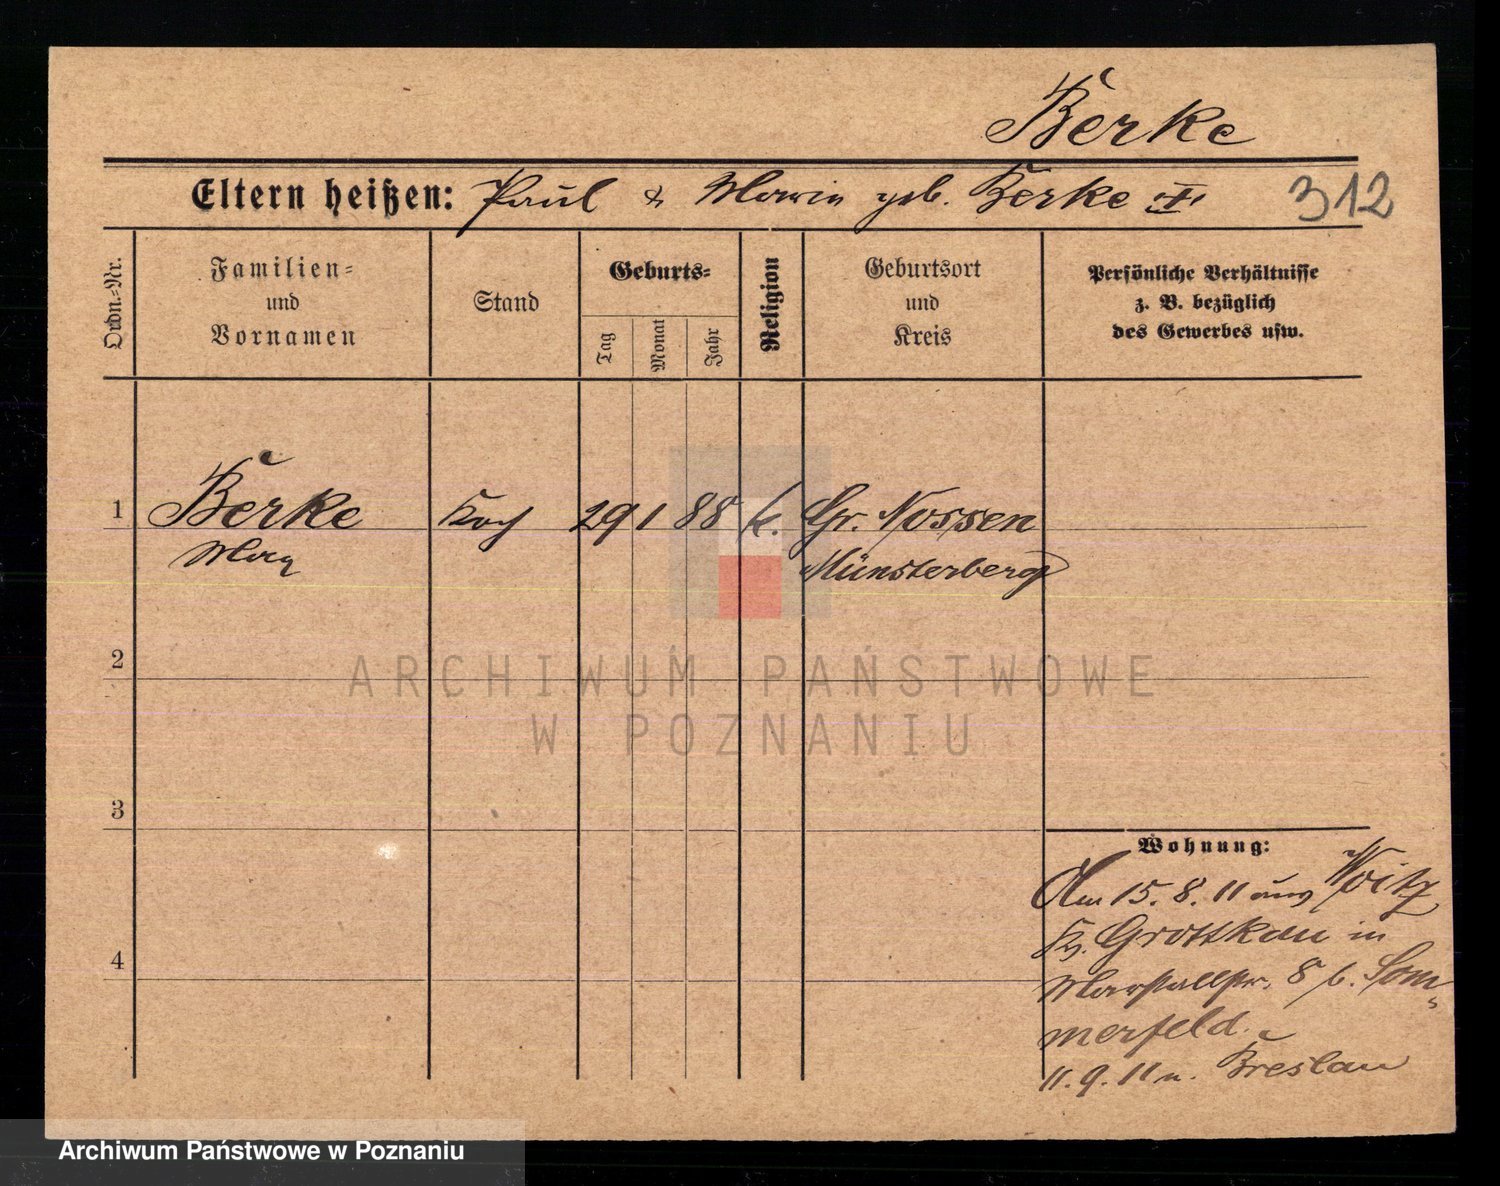 Berke
Eltern heißen: Paul & Marie geb. Berke
312
Ordn.-Nr.
Familien-
und
Vornamen
Stand
Geburts-
Tag
Monat
Jahr
Religion
Geburtsort
und
Kreis
Persönliche Verhältnisse
z. B. bezüglich
des Gewerbes usw.
1 Berke Koch 29 1 88 k. Gr. Nossen
Max Münsterberg
2
3
4
Wohnung:
Am 15.8.11 aus Woitz
Kr. Grottkau in
Marstallstr. 8 b. Som-
merfeld.
11.9.11 n. Breslau
ARCHIWUM PAŃSTWOWE
W POZNANIU
Archiwum Państwowe w Poznaniu